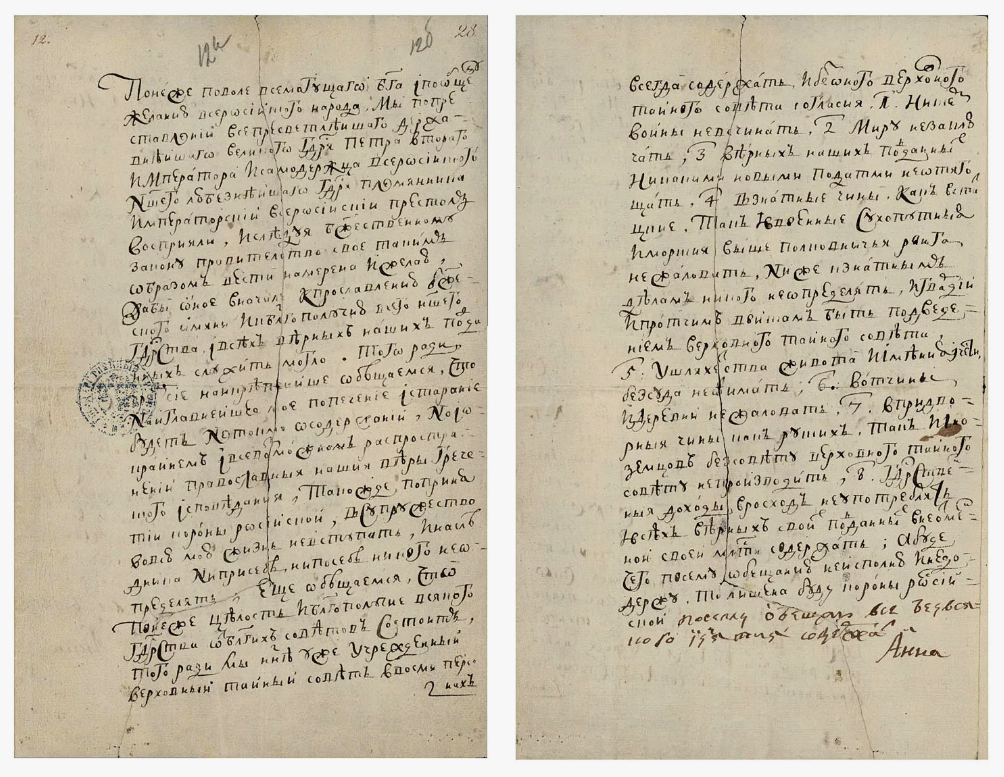 12.
126
126
28
Понеже по воле всемогущаго бга і по общему
желанию всеросиіского народа, Мы по пре
ставлениі всепресветлеишаго держа-
внеишаго великого Гдря Петра Второго
Императора и самодержца всеросиіского
ншего любезнеишаго Гдря племянника
Императорскиі всеросиіскиі престолъ
восприяли, и следуя бжественному
закону правителство свое такимъ
образомъ вести намерена и желаю,
дабы оное вначале к прославлению бже-
ского имяни и к благополучию всего ншего
Гдрства і всехъ верныхъ нашихъ подда
нныхъ служить могло. Того ради,
чрез сие наикрепчаише обещаемся, что
наиглавнеишее мое попечение і старание
будетъ не токмо о содержаниі, но і о
краинемъ і всевозможномъ распростра-
нениі православныя нашия веры грече-
ского исповедания, такожде по приня
тиі короны росиіской, в супружество
во всю мою жизнь не вступать, и насле
дника ни при себе ни по себе никого не о-
пределять, Еще обещаемся, что
понеже целость и благополучие всякого
Гдрства от благихъ советов состоитъ,
того ради мы ныне уже учрежденныі
верховныі таиныі советъ в восми персо
нахъ
всегда содержать, и без оного верховного
таиного совета согласия, 1. Ни с кем
воины не всчинать, 2 Миру не заклю
чать, 3 верныхъ нашихъ подданных
никакими новыми податми не отяго
щать, 4 в знатные чины, какъ в ста
цкие, такъ и в военные сухопутныя
и морския выше полковничья ранга
не жаловать, ниже к знатнымъ
деламъ никого не определять, и гвардиі
и протчимъ воискам быть под веде-
нием верховного таиного совета,
5. У шляхетства живота и имения и чести
без суда не отимать, 6. вотчины,
и деревни не жаловать, 7. в придво-
рныя чины как руских, такъ и ино-
земцов без совету верховного таиного
совету не производить, 8. Гдрстве-
ныя доходы в росход не употреблять
и всехъ верныхъ своих подданных в неотме-
ной своеи млсти содержать; А буде
чего по сему обещанию не исполню и не до-
держу, то лишена буду короны росиі-
ской
по сему обещаю все безо вся-
кого изятия содержать
Анна